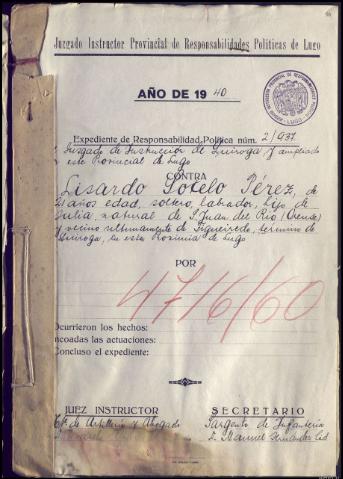 Juzgado Instructor Provincial de Responsabilidades Políticas de Lugo
AÑO DE 1940
Expediente de Responsabilidad Política núm. 2/937
Juzgado de Instrucción de Quiroga y ampliado
este Provincial de Lugo
CONTRA
Lisardo Sotelo Pérez, de
años edad, soltero, labrador, hijo de
Julia, natural de S. Juan del Río (Orense)
y vecino últimamente de Figueiredo, término de
Quiroga, en esta Provincia de Lugo
POR
4716/60
Ocurrieron los hechos:
ncoadas las actuaciones:
Concluso el expediente:
JUEZ INSTRUCTOR
SECRETARIO
de Artillería y Abogado
Sargento de Infantería
D. Manuel Fernández Cid